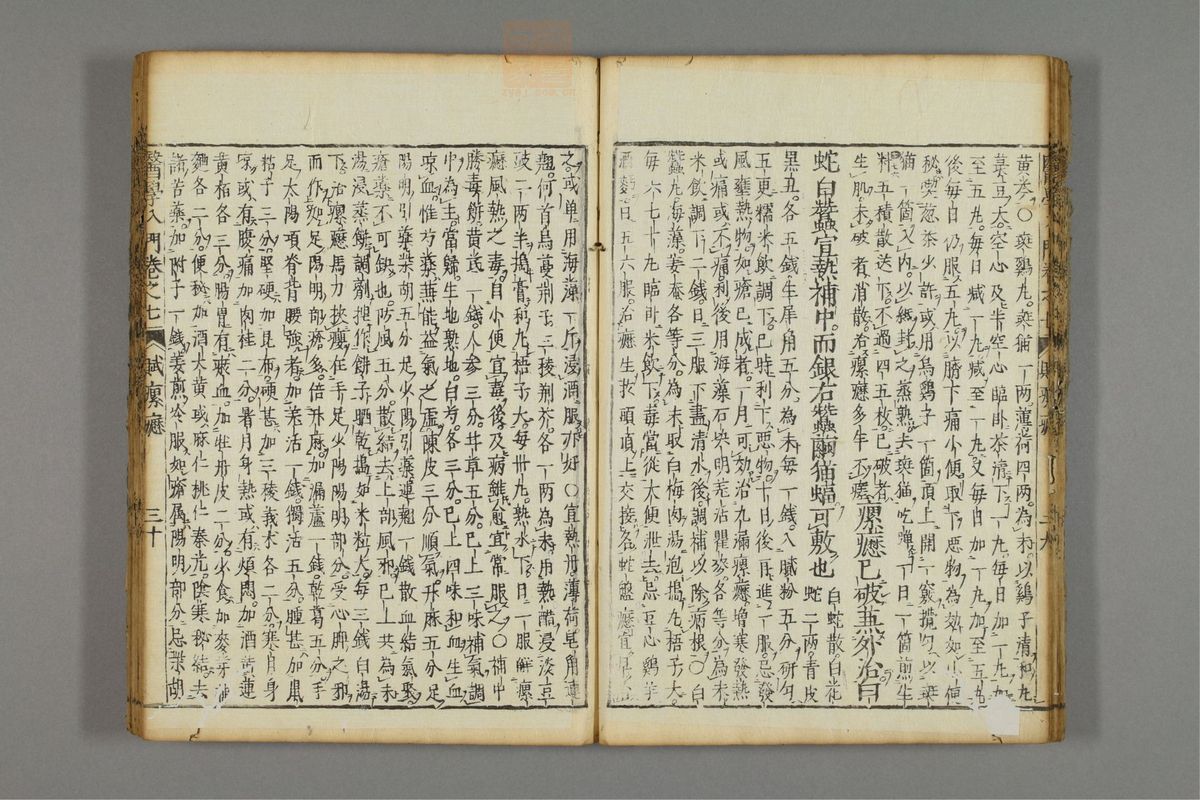 黃芩○斑鷄丸斑猫一两薄荷四两為末以鷄子清和丸
菉豆大空心及半空心臨卧茶清下一丸毎日加一丸加
至五丸毎日减一丸减至一丸又毎日加一丸加至五丸
後毎日仍服五丸以臍下痛小便取下悪物為効如小便
秘喫葱茶少許或用烏鷄子一箇頂上開一竅攪勻以斑
猫一箇入内以紙封之蒸熟去斑猫吃蛋一日一箇煎生
料五積散送下不過四五枚已破者
生肌未破者消散治瘰癧多年不
瘰癧已破兼外治白
蛇白蠶宜熱補中而銀右蠶繭猫蝠可敷也
白蛇散白花
蛇二两青皮
黒丑各五錢生犀角五分為末毎一錢入膩粉五分研勻
五更糯米飲調下巳時利下悪物十日後再進一服忌發
風壅熱物如瘡已成者一月可効治九漏瘰癧増寒發熱
或痛或不痛利後用海藻石决明羌活瞿麥各等分為末
米飲調下二錢日三服下盡清水後調補以除病根○白
蠶丸海藻
各等分為末取白梅肉湯泡搗丸梧子大
毎六七十丸臨卧米飲下毒當從大便泄去忌豆心鷄羊
酒麪日五六服治癧生於頭項上交接名蛇盤癧宜早治
之或单用海藻一斤浸酒服亦好○宜熱丹薄荷皂角連
翹何首烏蔓荆子三稜荆芥各一两為末用熱醋浸淡豆
豉二两半搗膏和丸梧子大毎卅丸熱水下日一服解瘰
癧風熱之毒自小便宜毒後及病雖愈宜常服之○補中
勝毒餅黄芪一錢人参三分甘草五分已上三味補氣調
中為主當歸生地熟地白芍各三分已上四味和血生血
凉血惟芍藥兼能益氣之虚陳皮三分順氣升麻五分足
陽明引藥柴胡五分足少陽引藥連翹一錢散血結氣聚
瘡藥不可缺也防風五分散結去上部風邪已上共為末
湯浸蒸餅調劑捏作餅子晒乾搗如米粒大毎三錢白湯
下治瘰癧馬刀挾癭在手足少陽陽明部分受心脾之邪
而作如足陽明部瘡多倍升麻加漏蘆一錢乾葛五分手
足太陽項脊背腰強者加羌活一錢獨活五分腫甚加鼠
粘子三分堅硬加昆布硬甚加三稜莪术各二分寒月身
凉或有腹痛加肉桂二分暑月身熱或有煩悶加酒黄連
黄栢各三分腸胃有瘀血加牡丹皮二分少食加麥芽神
麯各二分便秘加酒大黄或麻仁桃仁秦艽陰寒秘結去
諸苦藥加附子一錢姜煎冷服如瘡属陽明部分忌柴胡
醫學入門卷之七
賦瘰癧
三十